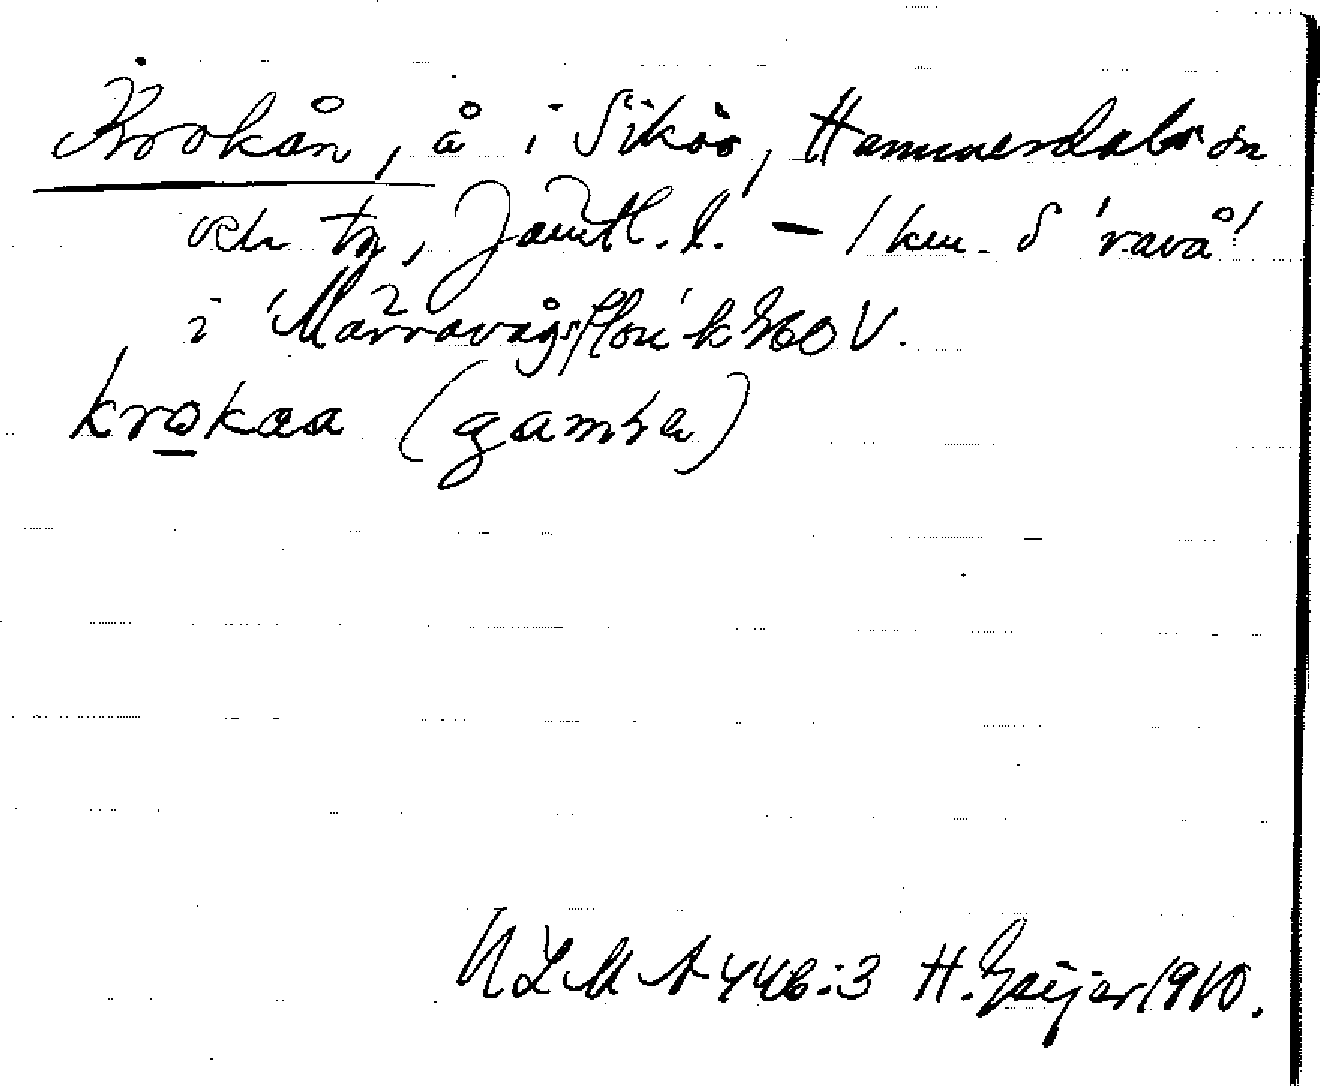 Krokån, å i Sikås, Hammerdals sn
och tg, Jämtl. l. — 1 km. S 'ravå'
i 'Märravågsflon' k 260 V.
krokaa (gamla)
ULMA 446:3 H. Geijer 1910.